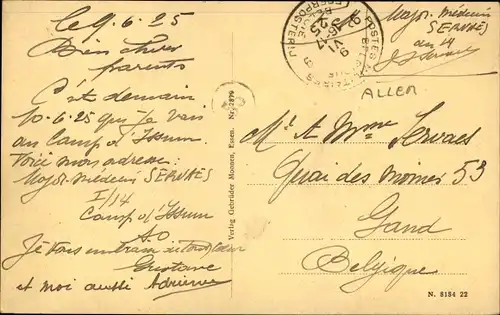 le 9.6.25
Bien chers
parents
C'est demain
10.6.25 que je vais
au Camp d'Issum.
Voici mon adresse:
Major-médecin SERVAES
I/14
Camp d'Issum
Gustave
et moi aussi Adrienne
Verlag Gebrüder Monnen, Essen. Nr. 7879
POSTES MILITAIRES
BELGIQUE
BELGIE
LEGERPOSTERIJ
9 VI
16-17
25
Major-médecin
SERVAES
du 14
ALLEM
Mr et Mme Servaes
Quai des moines 53
Gand
Belgique
N. 8184 22